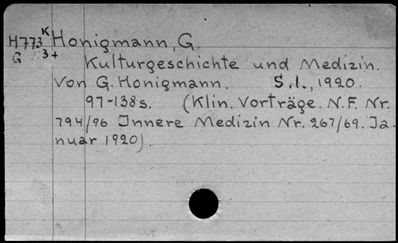 H773 K Honigmann, G.
G 3+ Kulturgeschichte und Medizin.
Von G. Honigmann. S.l., 1920.
97-138s. (Klin. Vorträge. N.F. Nr.
794/96 Innere Medizin Nr. 267/69. Ja-
nuar 1920).